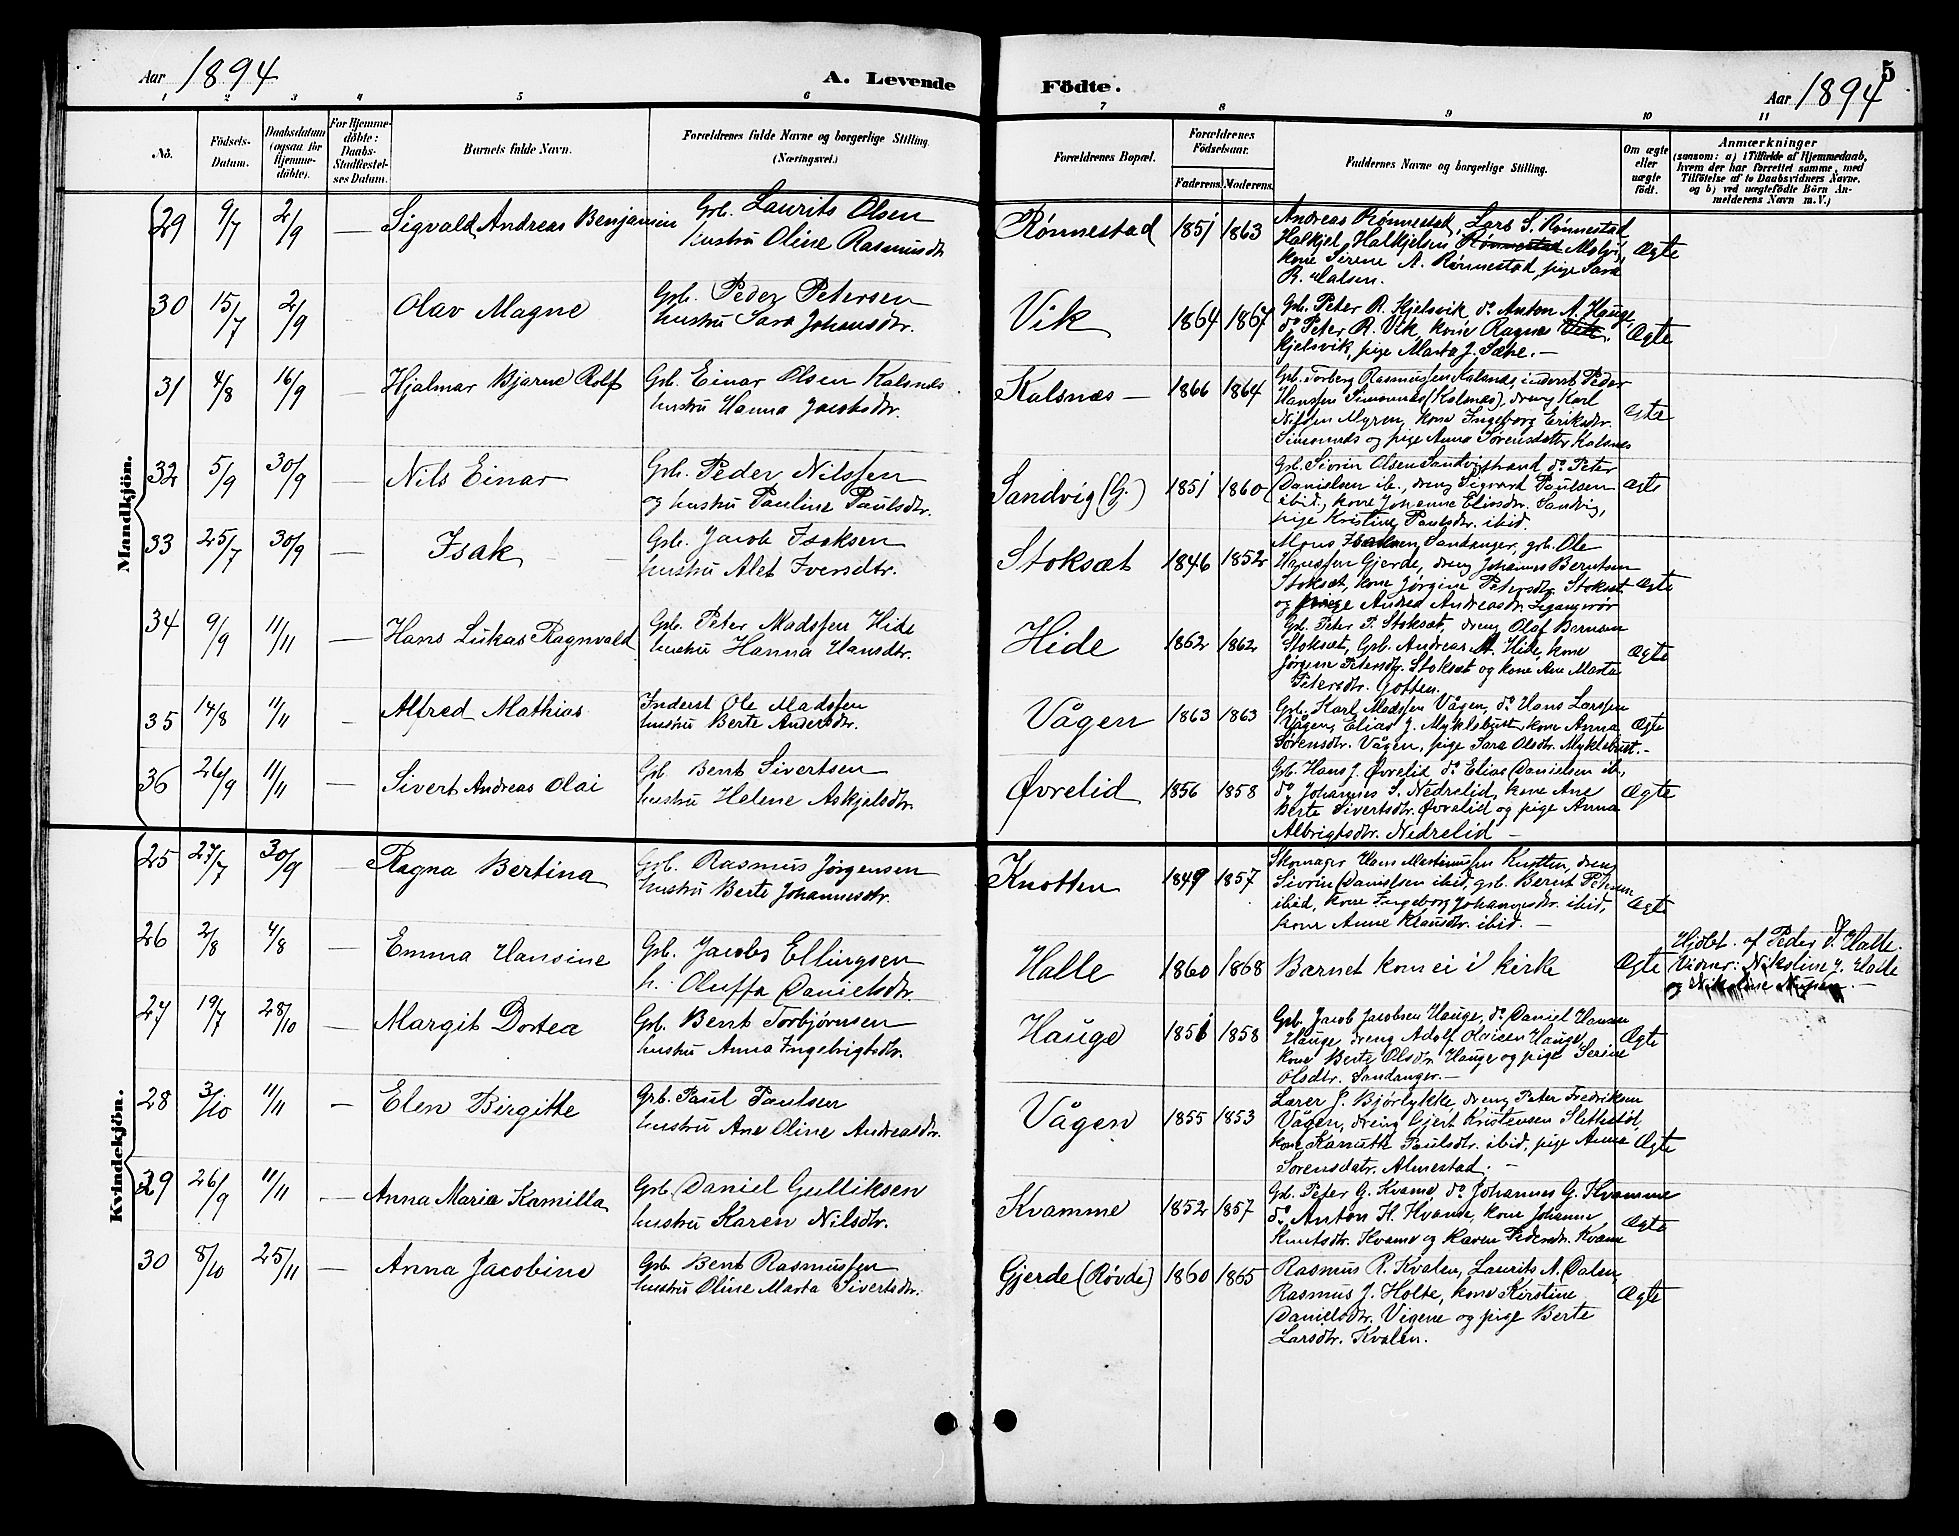 Aar 1894
A. Levende
Födte.
Aar 1894
5
1 2 3 4 5 6 7 8 9 10 11
No.
Födsels-
Datum.
Daabsdatum
(ogsaa for
Hjemme-
döbte).
For Hjemme-
döbte:
Daabs-
Stadfæstel-
ses Datum.
Barnets fulde Navn.
Forældrenes fulde Navne og borgerlige Stilling.
(Næringsvei.)
Forældrenes Bopæl.
Forældrenes
Födselsaar.
Faderens. Moderens.
Faddernes Navne og borgerlige Stilling.
Om ægte
eller
uægte
födt.
Anmærkninger
(saasom: a) i Tilfælde af Hjemmedaab,
hvem der har forrettet samme, med
Tilföielse af to Daabsvidners Navne,
og b) ved uægtefödte Börn An-
melderens Navn m. V.)
Mandkjön.
29 9/7 2/9 — Sigvald Andreas Benjamin
Grb. Laurits Olsen
hustru Oline Rasmusdtr.
Rønnestad 1851 1863
Andreas Rønnestad, Lars S. Rønnestad
Halkjel Halkjelsen Rønnestad
kone Sirene A. Rønnestad, pige Sara
R.
Ægte
30 15/7 2/9 Olav Magne
Grb. Peder Petersen
hustru Sara Johansdtr.
Vik 1864 1867
Grb. Peter R. Kjelsvik, do Anton A. Hauge,
do Peter R. Vik, kone Ragna Vik
Kjelsvik, pige Marta J. Sæhe. —
Ægte
31 4/8 16/9 — Hjalmar Bjarne Rolf
Grb. Einar Olsen Kalsnes
hustru Hanna Jacobsdtr.
Kalsnæs — 1866 1864
Grb. Torberg Rasmussen Kalsnes, inderst Peder
Hanssen Simonnes (Kalsnæs), dreng Karl
Nilssen Myren, kone Ingeborg Eriksdtr.
Simonnes og pige Anna Sørensdatter Kalsnes
Ægte
32 5/9 30/9 — Nils Einar
Grb. Peder Nilssen
og hustru Pauline Paulsdtr.
Sandvig (G.) 1851 1860
Grb. Sivrin Olsen Sandvigstrand, do Peter
Danielsen ib., dreng Sigvard Paulsen
ibid, kone Johanne Eliasdtr. Sandvig,
pige Kristine Paulsdtr. ibid.
Ægte
33 25/7 30/9 — Isak
Grb. Jacob Isaksen
hustru Alet Iversdtr.
Stoksæt 1846 1852
Mons Isaksen, Sandanger, grb. Ole
Hanssen Gjerde, dreng Johannes Berntsen
Stoksæt, kone Jørgine Petersdtr. Stoksæt
og pige Andrea Andreasdtr. Leganger
Ægte
34 9/9 11/11 — Hans Lukas Ragnvald
Grb. Peter Madssen Hide
hustru Hanna Hansdtr.
Hide 1862 1862
Grb. Peter P. Stoksæt, dreng Olaf Bernsen
Stoksæt, Grb. Andreas M. Hide, kone
Jørgine Petersdtr. Stoksæt og kone Ane Marta
Petersdtr. Gotten.
Ægte
35 14/8 11/11 - Alfred Mathias
Inderst Ole Madssen
hustru Berte Andersdtr.
Vågen 1863 1863
Grb. Karl Madssen Vågen, do Hans Larssen
Vågen, Elias J. Myklebust, kone Anna
Sørensdtr. Vågen, pige Sara Olsdtr. Myklebust. —
Ægte
36 26/9 11/11 — Sivert Andreas Olai
Grb. Bent Sivertsen
hustru Helene Askjelsdtr
Øvrelid 1856 1858
Grb. Hans J. Øvrelid, do Elias Danielsen ib.,
do Johannes S. Nedrelid, kone Ane
Berte Sivertsdtr. Øvrelid og pige Anna
Albrigtsdtr. Nedrelid —
Ægte
Kvindekjön.
25 27/7 30/9 — Ragna Bertina
Grb. Rasmus Jørgensen
hustru Berte Johannesdtr.
Knotten 1849 1857
Skomager Hans Martinussen Knotten, dreng
Sivrin Danielsen ibid, grb. Bernt Petersen
ibid, kone Ingeborg Johannesdtr. ibid,
kone Anne Klausdtr. ibid. —
Ægte
26 2/8 4/8 — Emma Hansine
Grb. Jacob Ellingsen
h. Oluffa Danielsdtr.
Halle 1860 1868
Barnet kom ei i kirke
Ægte
Hjdbt. af Peder J. Halle.
Vidner: Nikoline J. Halle
og Nikoline —
27 19/7 28/10 — Margit Dortea
Grb. Bent Torbjørnsen
hustru Anna Ingebrigtsdtr.
Hauge 1851 1858
Grb. Jacob Jacobsen Hauge, do Daniel Hansen
Hauge, dreng Adolf Olaisen Hauge,
kone Berte Olsdtr. Hauge og pige Serine
Olsdtr. Sandanger. —
Ægte
28 3/10 11/11 — Elen Birgitte
Grb. Paul Paulsen
hustru Ane Oline Andreasdtr.
Vågen 1855 1853
Lærer J. Bjørlykke, dreng Peter Fredriksen
Vågen, dreng Gjert Kristensen Slettestøl,
kone Kanutte Paulsdtr. ibid, pige Anna
Sørensdatr. Almestad. —
Ægte
29 26/9 11/11 — Anna Maria Kamilla
Grb. Daniel Gulliksen
hustru Karen Nilsdtr.
Kvamme 1852 1857
Grb. Peter G. Kvame, do Johannes G. Kvamme
do Anton H. Kvame, kone Johanne
Knutsdtr. Kvame og Karen Pedersdtr. Kvame
Ægte
30 8/10 25/11 — Anna Jacobine
Grb. Bent Rasmussen
hustru Oline Marta Sivertsdtr.
Gjerde (Røvde) 1860 1865
Rasmus R. Kvalen, Laurits A. Dalen,
Rasmus J. Holte, kone Kirstine
Danielsdtr. Vigene og pige Berte
Larsdtr. Kvalen.
Ægte